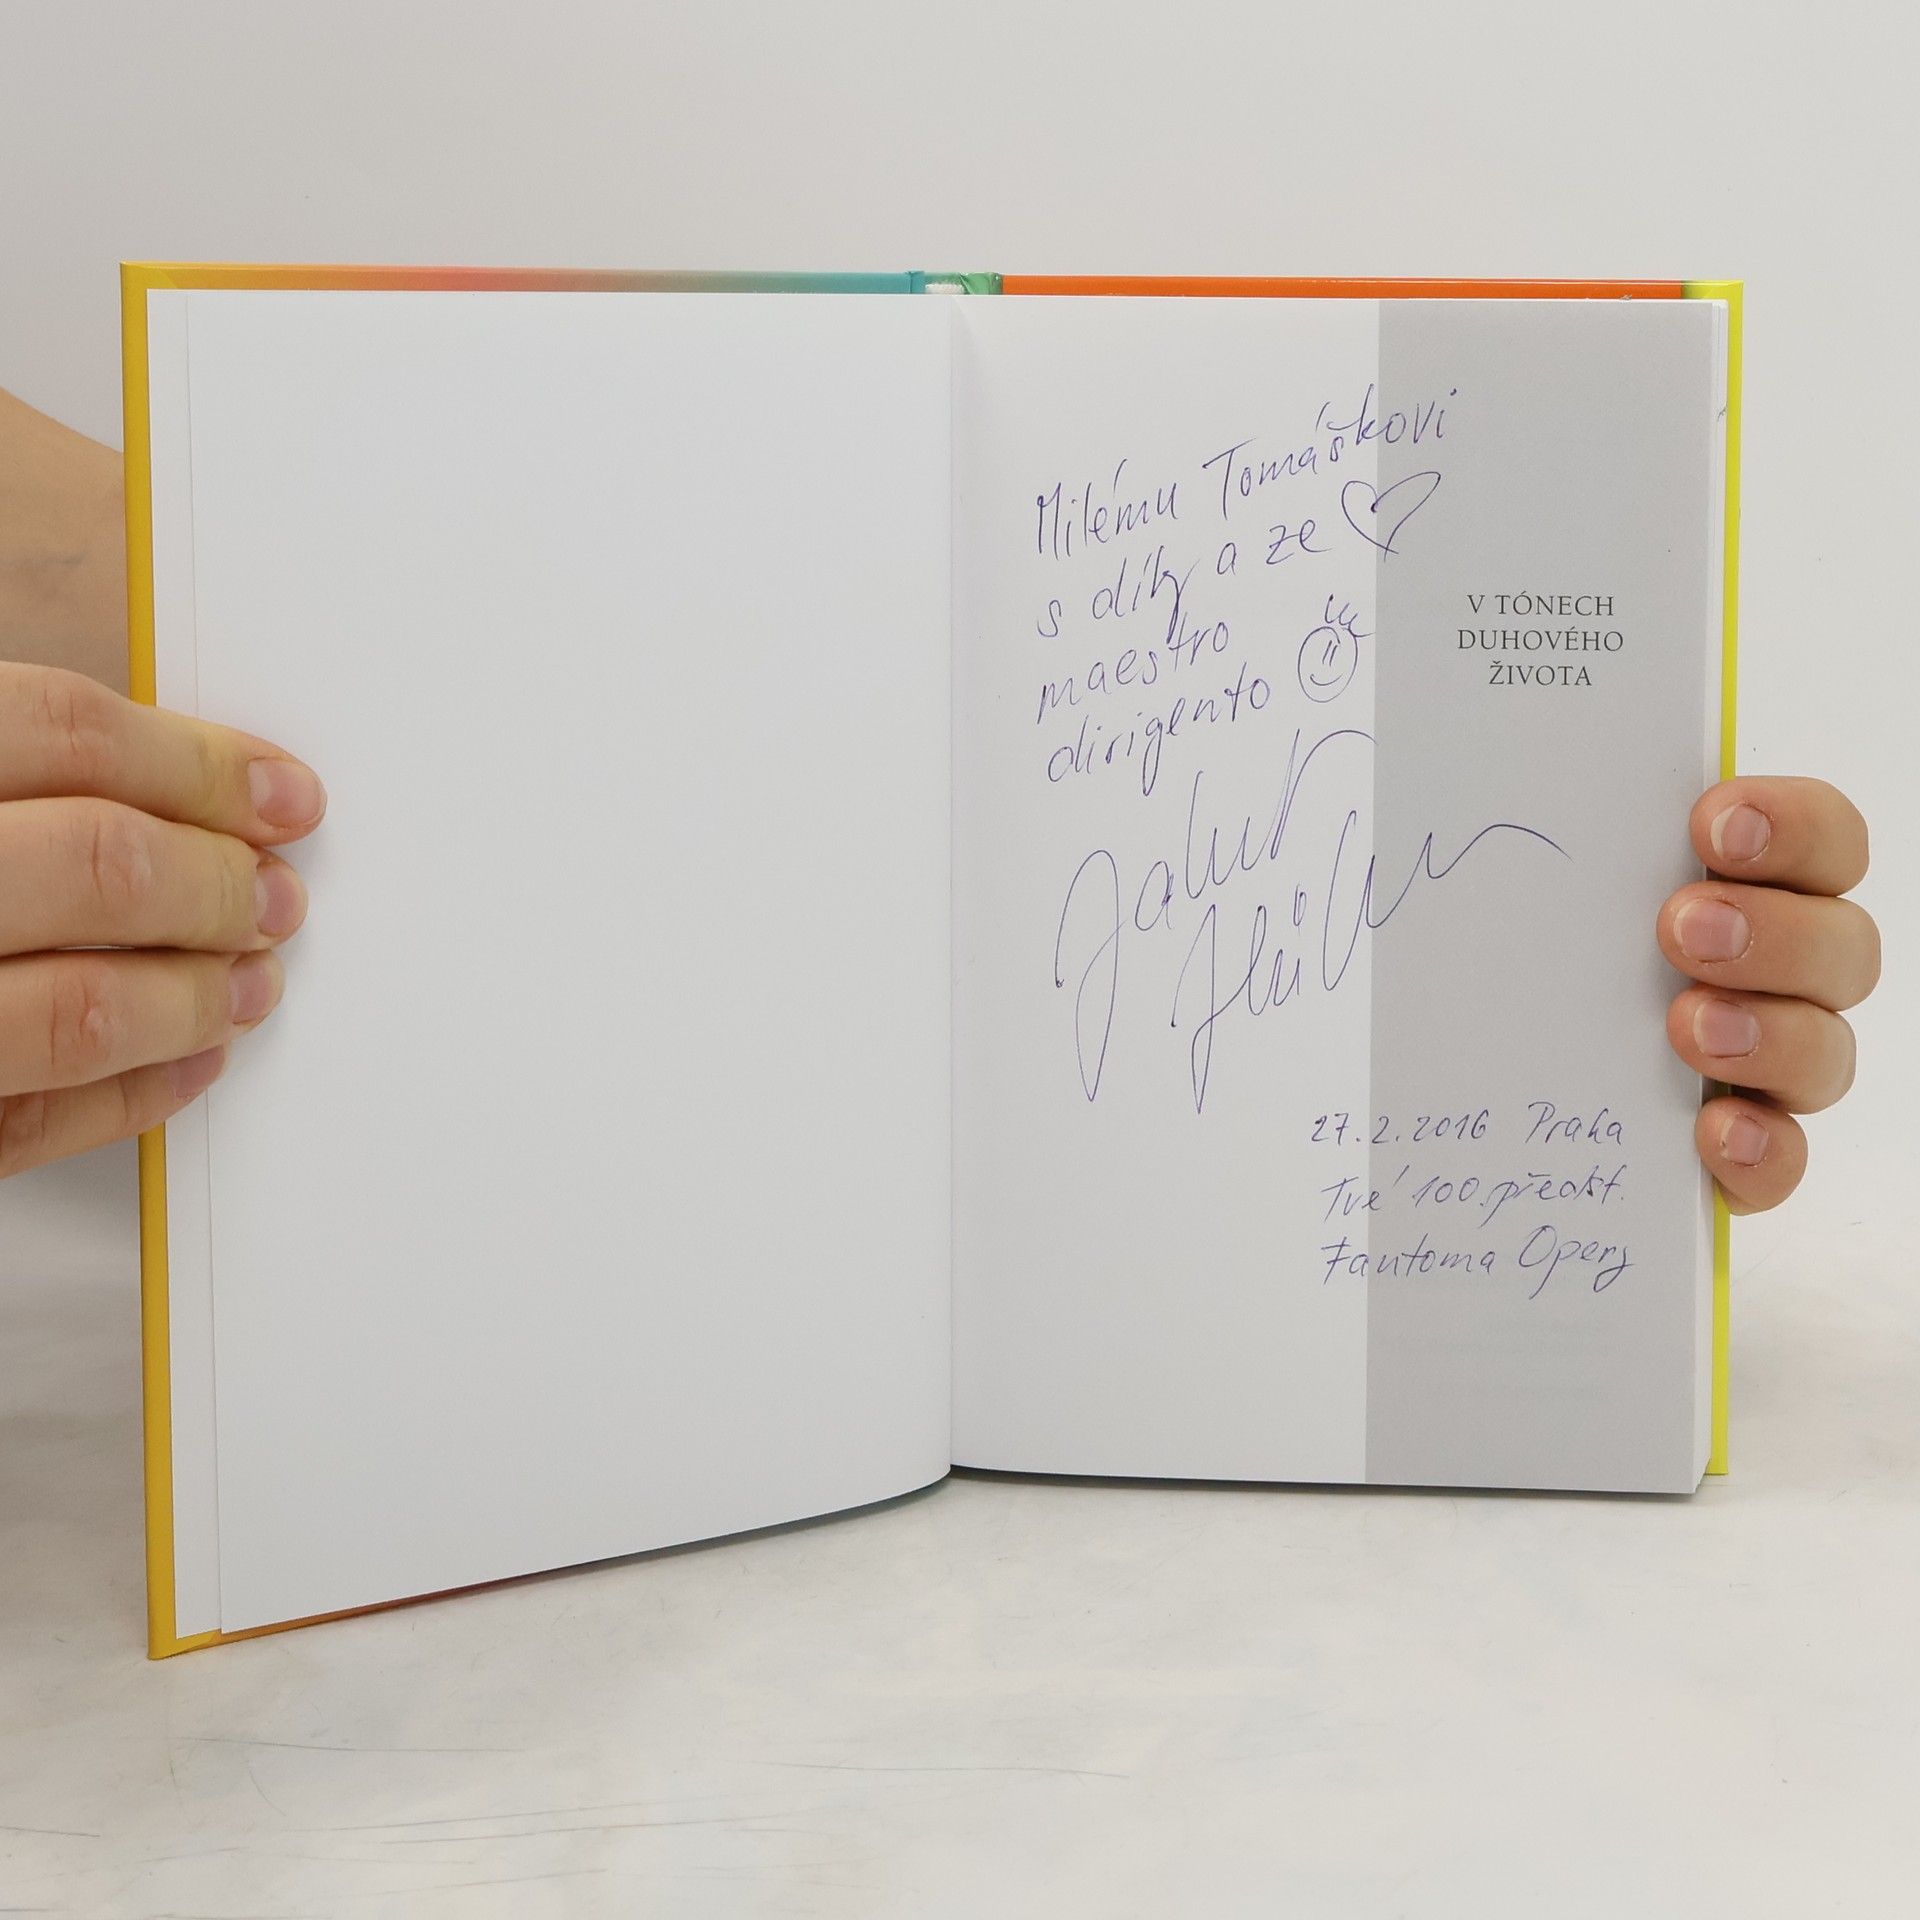 Milému Tomáškovi
s díky a ze
maestro
dirigento
Jakub
27.2.2016 Praha
Tvé 100. předst.
Fantoma Opery
V TÓNECH
DUHOVÉHO
ŽIVOTA